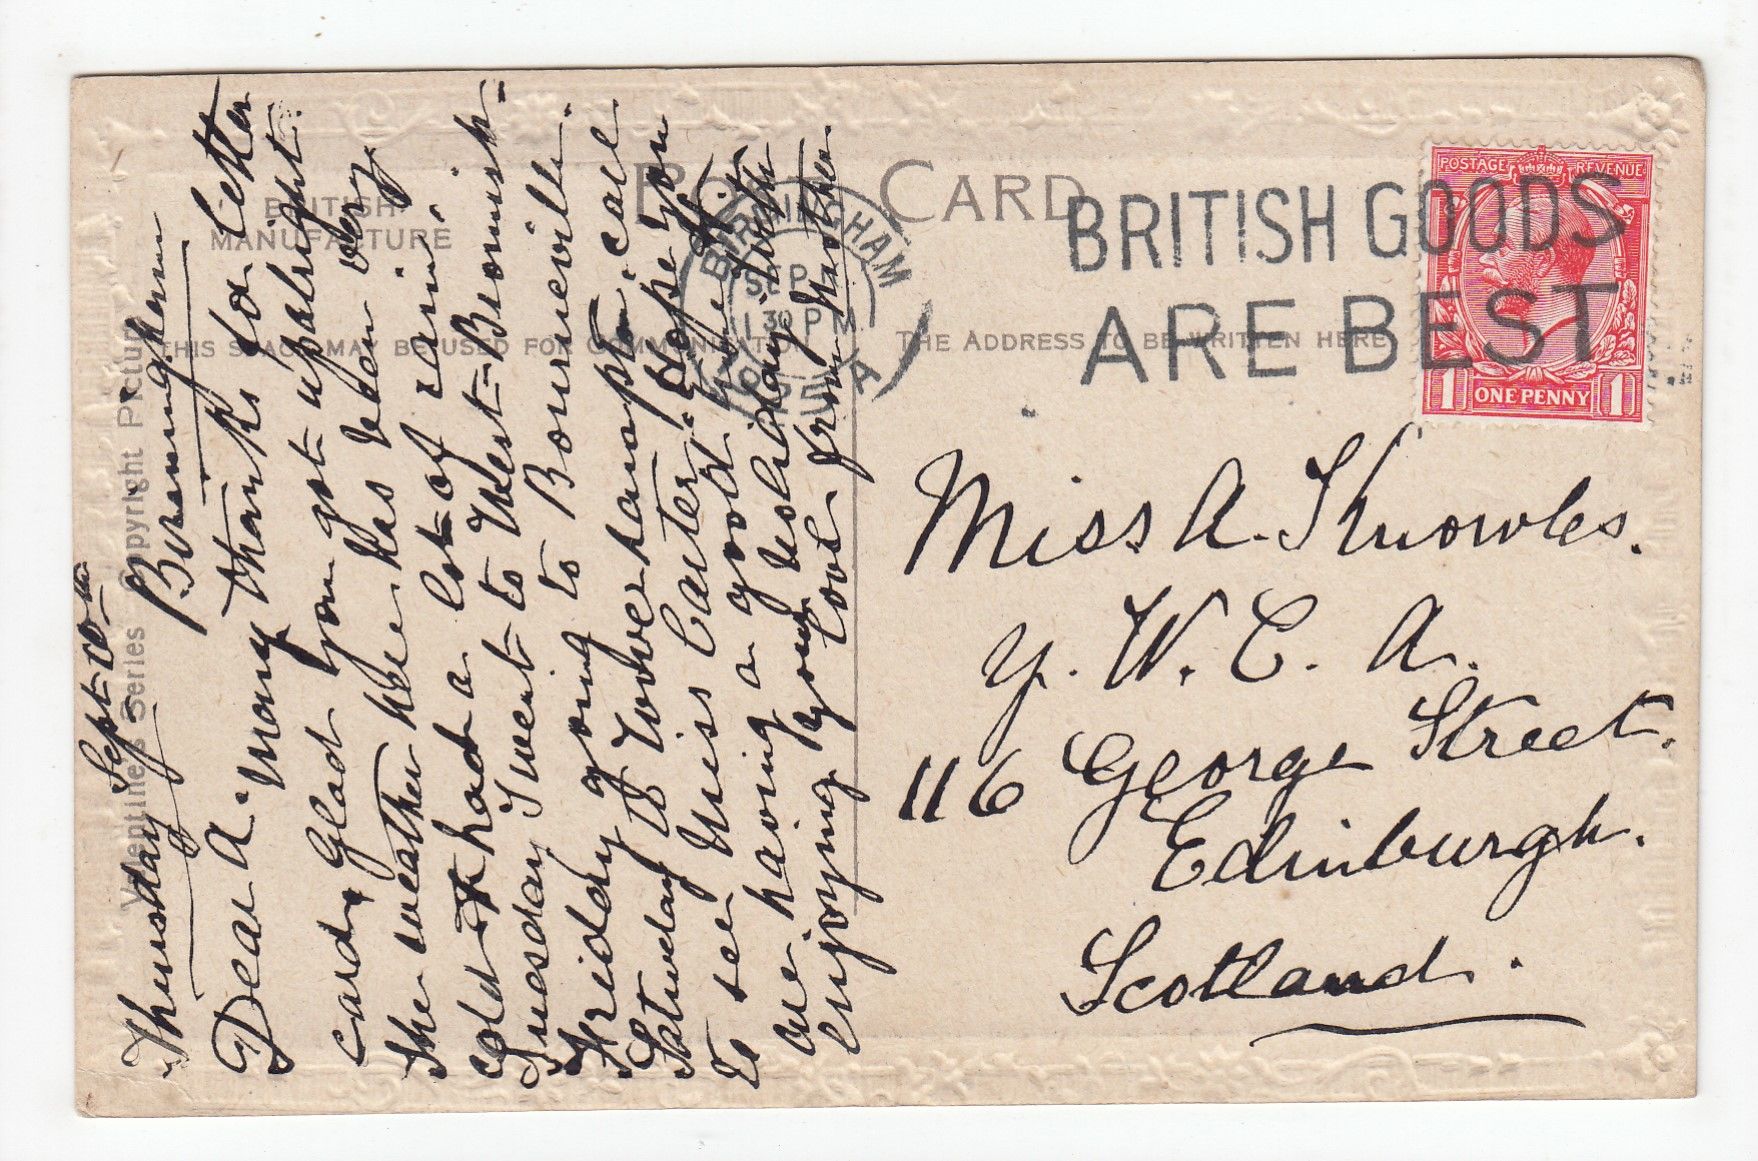 POST CARD
BRITISH
MANUFACTURE
THIS SPACE MAY BE USED FOR COMMUNICATION
THE ADDRESS TO BE WRITTEN HERE
Valentine's Series Copyright Picture
BIRMINGHAM
SEP
1 30 PM
A
BRITISH GOODS
ARE BEST
POSTAGE REVENUE
1 ONE PENNY 1
Thursday Sept
Birmingham
Dear A. Many thanks for letter
card, Glad you got up alright.
The weather here has been very
cold & had a lot of rain.
Tuesday I went to West-Bromich-
Friday going to Bourneville.
Saturday to Wolverhampton call
to see Miss Carter. Hope you
are having a good time &
enjoying your holiday with
love from
Miss A. Knowles.
Y. W. C. A.
116 George Street.
Edinburgh.
Scotland.